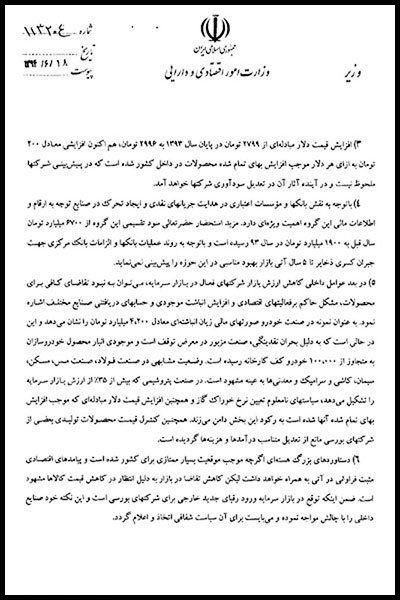 شماره ۱۱۳۲۰۶
تاریخ ۱۳۹۴/۶/۱۸
پیوست
جمهوری اسلامی ایران
وزارت امور اقتصادی و دارایی
وزیر
۳) افزایش قیمت دلار مبادله‌ای از ۲۷۹۹ تومان در پایان سال ۱۳۹۳ به ۲۹۹۶ تومان، هم اکنون افزایشی معادل ۲۰۰
تومان به ازای هر دلار موجب افزایش بهای تمام شده محصولات در داخل کشور شده است که در پیش‌بینی شرکتها
ملحوظ نیست و در آینده آثار آن در تعدیل سودآوری شرکتها خواهد آمد.
۴) باتوجه به نقش بانکها و مؤسسات اعتباری در هدایت جریانهای نقدی و ایجاد تحرک در صنایع توجه به ارقام و
اطلاعات مالی این گروه اهمیت ویژه‌ای دارد. مزید استحضار حضرتعالی سود تقسیمی این گروه از ۶۷۰۰ میلیارد تومان
سال قبل به ۱۹۰۰ میلیارد تومان در سال ۹۳ رسیده است و باتوجه به روند عملیات بانکها و الزامات بانک مرکزی جهت
جبران کسری ذخایر تا ۵ سال آتی بازار بهبود مناسبی در این حوزه را پیش‌بینی نمی‌نماید.
۵) در بعد عوامل داخلی کاهش ارزش بازار شرکتهای فعال در بازار سرمایه، می‌توان به نبود تقاضای کافی برای
محصولات، مشکل حاکم برفعالیتهای اقتصادی و افزایش انباشت موجودی و حسابهای دریافتنی صنایع مختلف اشاره
نمود. به عنوان نمونه در صنعت خودرو صورتهای مالی زیان انباشته‌ای معادل ۴،۲۰۰ میلیارد تومان را نشان می‌دهد و این
در حالی است که به دلیل بحران نقدینگی، صنعت مزبور در معرض توقف است و موجودی انبار محصول خودروسازان
به متجاوز از ۱۰۰،۰۰۰ خودرو کف کارخانه رسیده است. وضعیت مشابهی در صنعت فولاد، صنعت مس، مسکن،
سیمان، کاشی و سرامیک و معدنی‌ها به عینه مشهود است. در صنعت پتروشیمی که بیش از ۳۵٪ از ارزش بازار سرمایه
را تشکیل می‌دهد، سیاستهای نامعلوم تعیین نرخ خوراک گاز و همچنین افزایش قیمت دلار مبادله‌ای که موجب افزایش
بهای تمام شده آنها شده است به رکود این بخش دامن می‌زند. همچنین کنترل قیمت محصولات تولیدی بعضی از
شرکتهای بورسی مانع از تعدیل متناسب درآمدها و هزینه‌ها گردیده است.
۶) دستاوردهای بزرگ هسته‌ای اگرچه موجب موقعیت بسیار ممتازی برای کشور شده است و پیامدهای اقتصادی
مثبت فراوانی در آتی به همراه خواهد داشت لیکن کاهش تقاضا در بازار به دلیل انتظار در کاهش قیمت کالاها مشهود
است. ضمن اینکه توقع در بازار سرمایه ورود رقبای جدید خارجی برای شرکتهای بورسی است و این نکته خود صنایع
داخلی را با چالش مواجه نموده و می‌بایست برای آن سیاست شفافی اتخاذ و اعلام گردد.